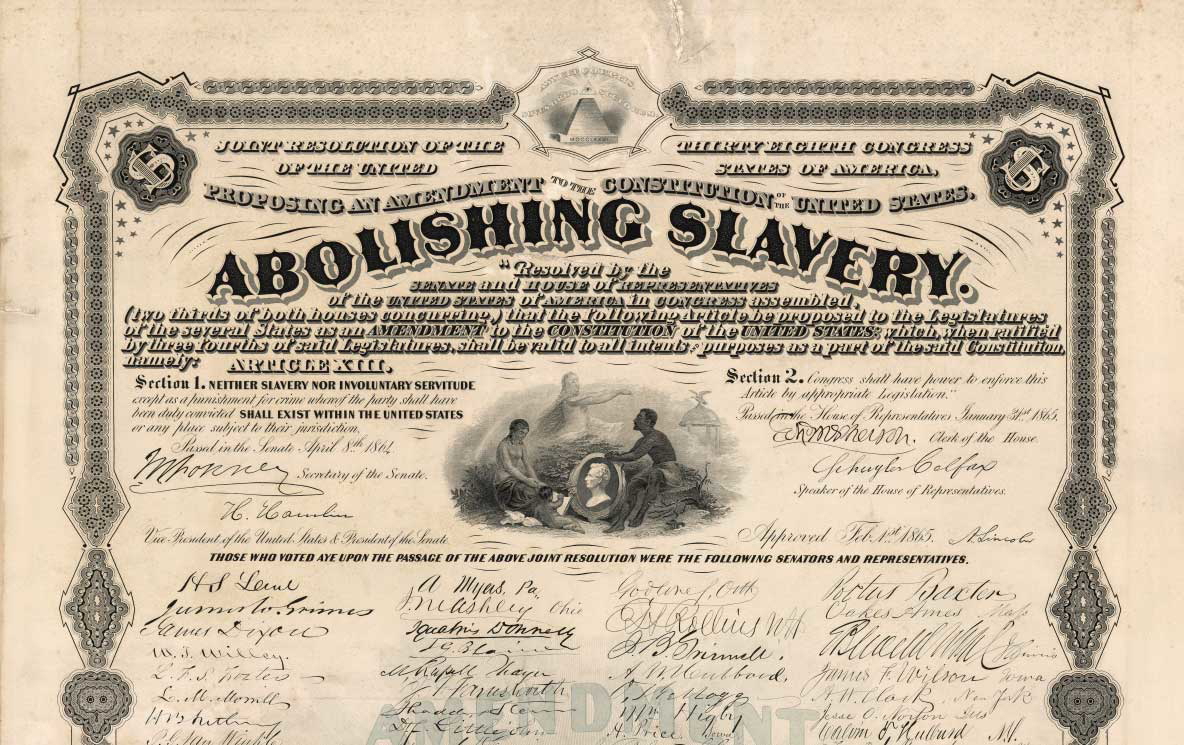 ANNUIT COEPTIS
MDCCLXXVI
JOINT RESOLUTION OF THE THIRTY EIGHTH CONGRESS
OF THE UNITED STATES OF AMERICA,
PROPOSING AN AMENDMENT TO THE CONSTITUTION OF THE UNITED STATES,
ABOLISHING SLAVERY.
"Resolved by the
SENATE and HOUSE of REPRESENTATIVES
of the UNITED STATES of AMERICA in CONGRESS assembled,
(two thirds of both houses concurring,) that the following Article be proposed to the Legislatures
of the several States as an AMENDMENT to the CONSTITUTION of the UNITED STATES; which, when ratified
by three fourths of said Legislatures, shall be valid to all intents & purposes as a part of the said Constitution,
namely: ARTICLE XIII.
Section 1. NEITHER SLAVERY NOR INVOLUNTARY SERVITUDE
except as a punishment for crime whereof the party shall have
been duly convicted SHALL EXIST WITHIN THE UNITED STATES
or any place subject to their jurisdiction,
Passed in the Senate April 8th 1864
Secretary of the Senate.
H. Hamlin
Vice President of the United States & President of the Senate
Section 2. Congress shall have power to enforce this
Article by appropriate Legislation."
Passed in the House of Representatives January 31st 1865.
Clerk of the House.
Schuyler Colfax
Speaker of the House of Representatives.
Approved Feb. 1st 1865. A Lincoln
THOSE WHO VOTED AYE UPON THE PASSAGE OF THE ABOVE JOINT RESOLUTION WERE THE FOLLOWING SENATORS AND REPRESENTATIVES.
H S Lane A Myers, Pa. Godlove S. Orth Portus Baxter
James W. Grimes J. M. Ashley Ohio E H Rollins NH Oakes Ames Mass
James Dixon Ignatius Donnelly J. B. Grinnell.
W. T. Willey. J G Blaine A. W. Hubbard, James F. Wilson Iowa
L. F. S. Foster M Russell Thayer Kellogg
L. M. Morrill J F Farnsworth Wm Higby
Thaddeus Stevens H. Price Iowa Calvin T Hulburd N.Y.
AMENDMENT